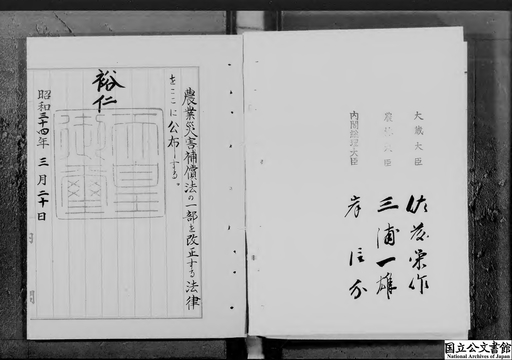 農業災害補償法の一部を改正する法律
をここに公布する。
裕仁
天皇御璽
昭和三十四年三月二十日
大蔵大臣 佐藤栄作
農林大臣 三浦一雄
内閣総理大臣 岸信介
国立公文書館
National Archives of Japan